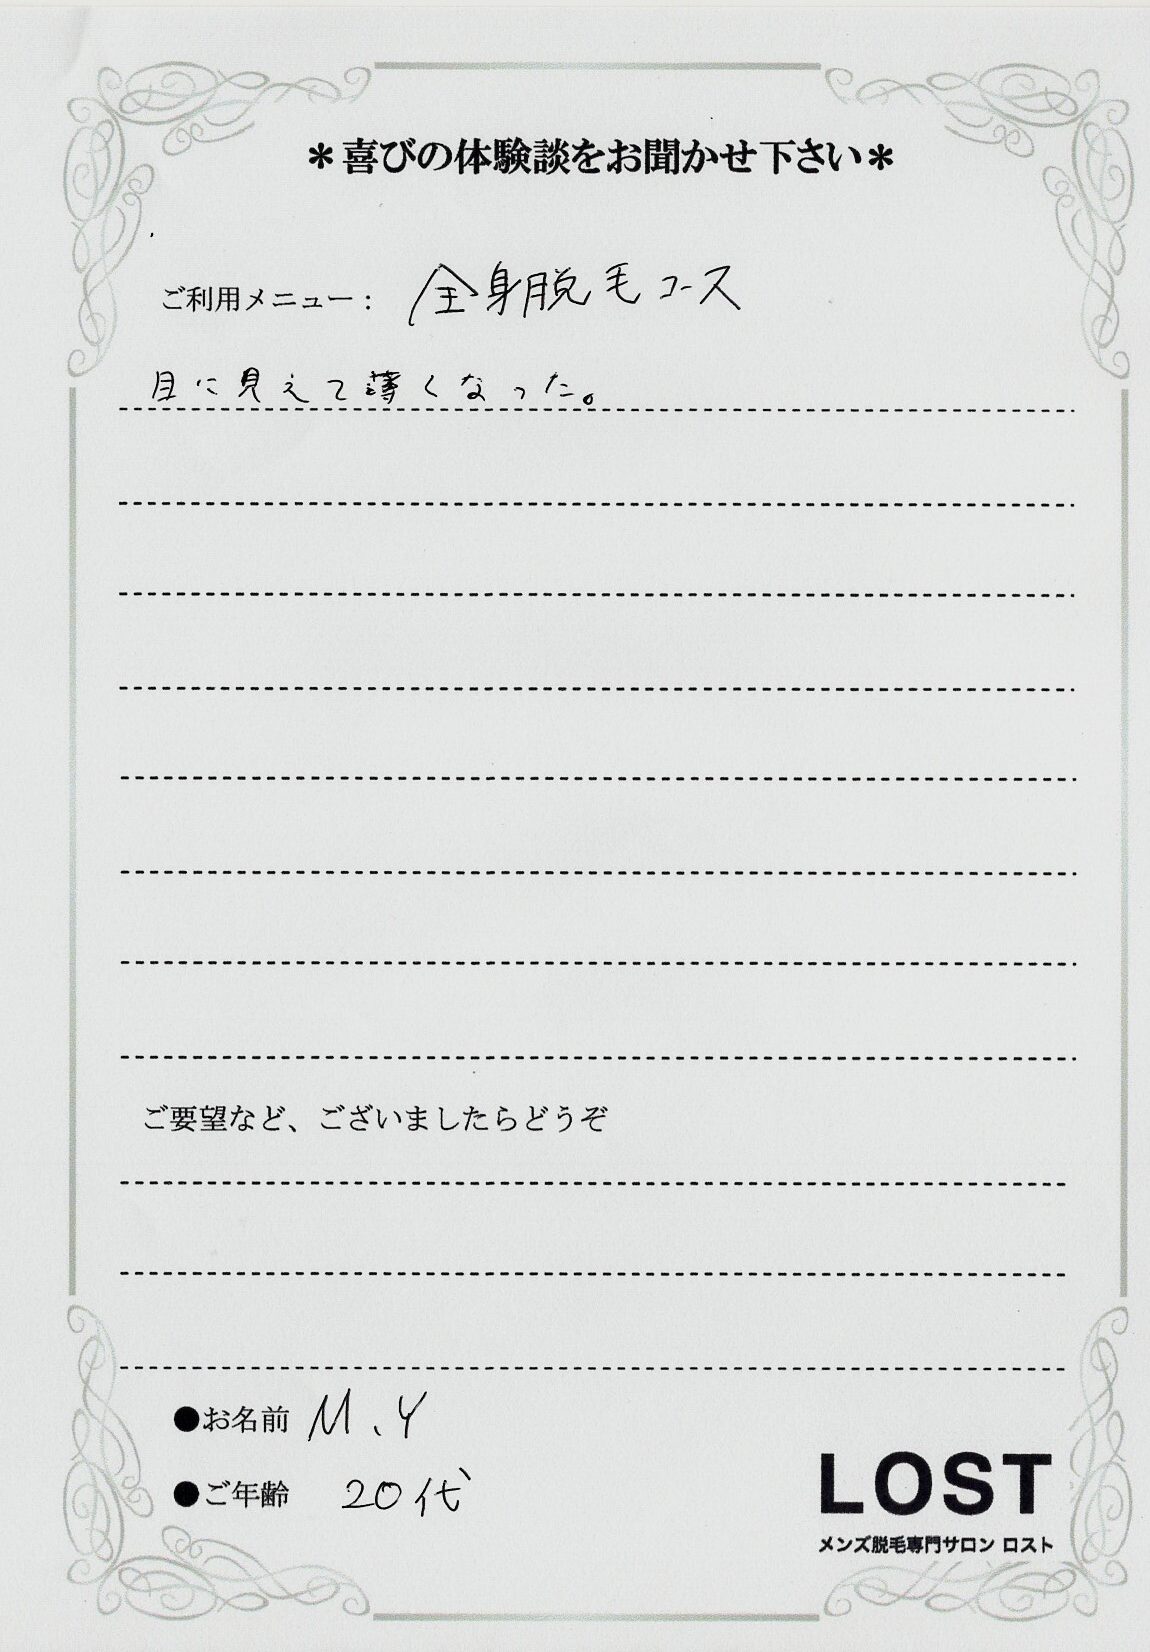 ＊喜びの体験談をお聞かせ下さい＊
ご利用メニュー： 全身脱毛コース
目に見えて薄くなった。
ご要望など、ございましたらどうぞ
●お名前 M.Y
●ご年齢 20代
LOST
メンズ脱毛専門サロン ロスト